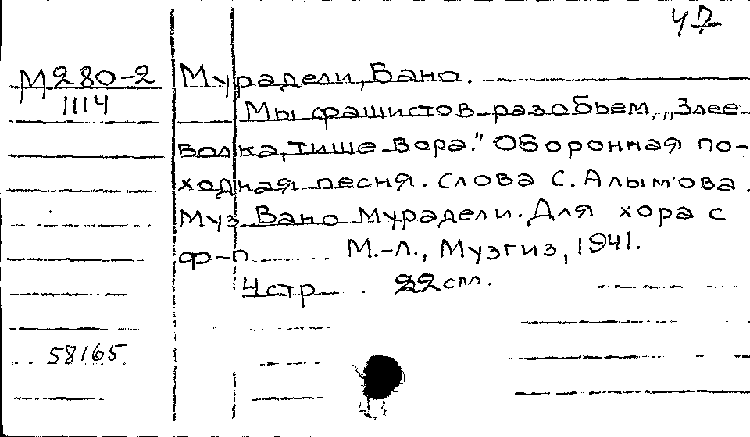 42
М280-2 Мурадели, Вано.
1114 Мы фашистов разобьем, „Злее
волка, тише вора." Оборонная по-
ходная песня. Слова С. Алымова.
Муз Вано Мурадели. Для хора с
ф-п. М.-Л., Музгиз, 1941.
4стр. 22 см.
58165